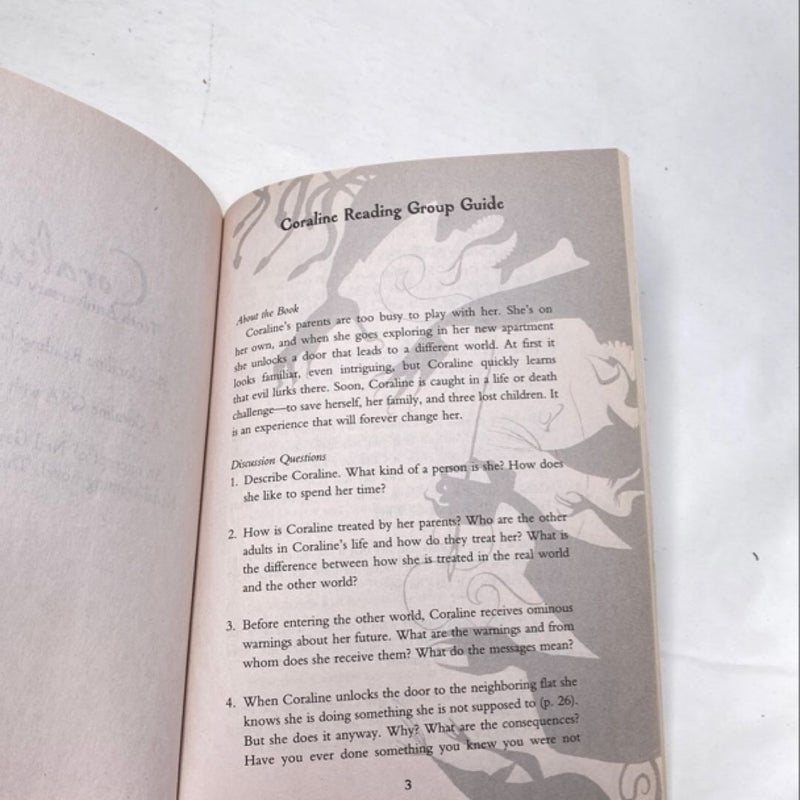 Coraline Reading Group Guide
About the Book
Coraline's parents are too busy to play with her. She's on
her own, and when she goes exploring in her new apartment
she unlocks a door that leads to a different world. At first it
looks familiar, even intriguing, but Coraline quickly learns
that evil lurks there. Soon, Coraline is caught in a life or death
challenge—to save herself, her family, and three lost children. It
is an experience that will forever change her.
Discussion Questions
1. Describe Coraline. What kind of a person is she? How does
she like to spend her time?
2. How is Coraline treated by her parents? Who are the other
adults in Coraline's life and how do they treat her? What is
the difference between how she is treated in the real world
and the other world?
3. Before entering the other world, Coraline receives ominous
warnings about her future. What are the warnings and from
whom does she receive them? What do the messages mean?
4. When Coraline unlocks the door to the neighboring flat she
knows she is doing something she is not supposed to (p. 26).
But she does it anyway. Why? What are the consequences?
Have you ever done something you knew you were not
3